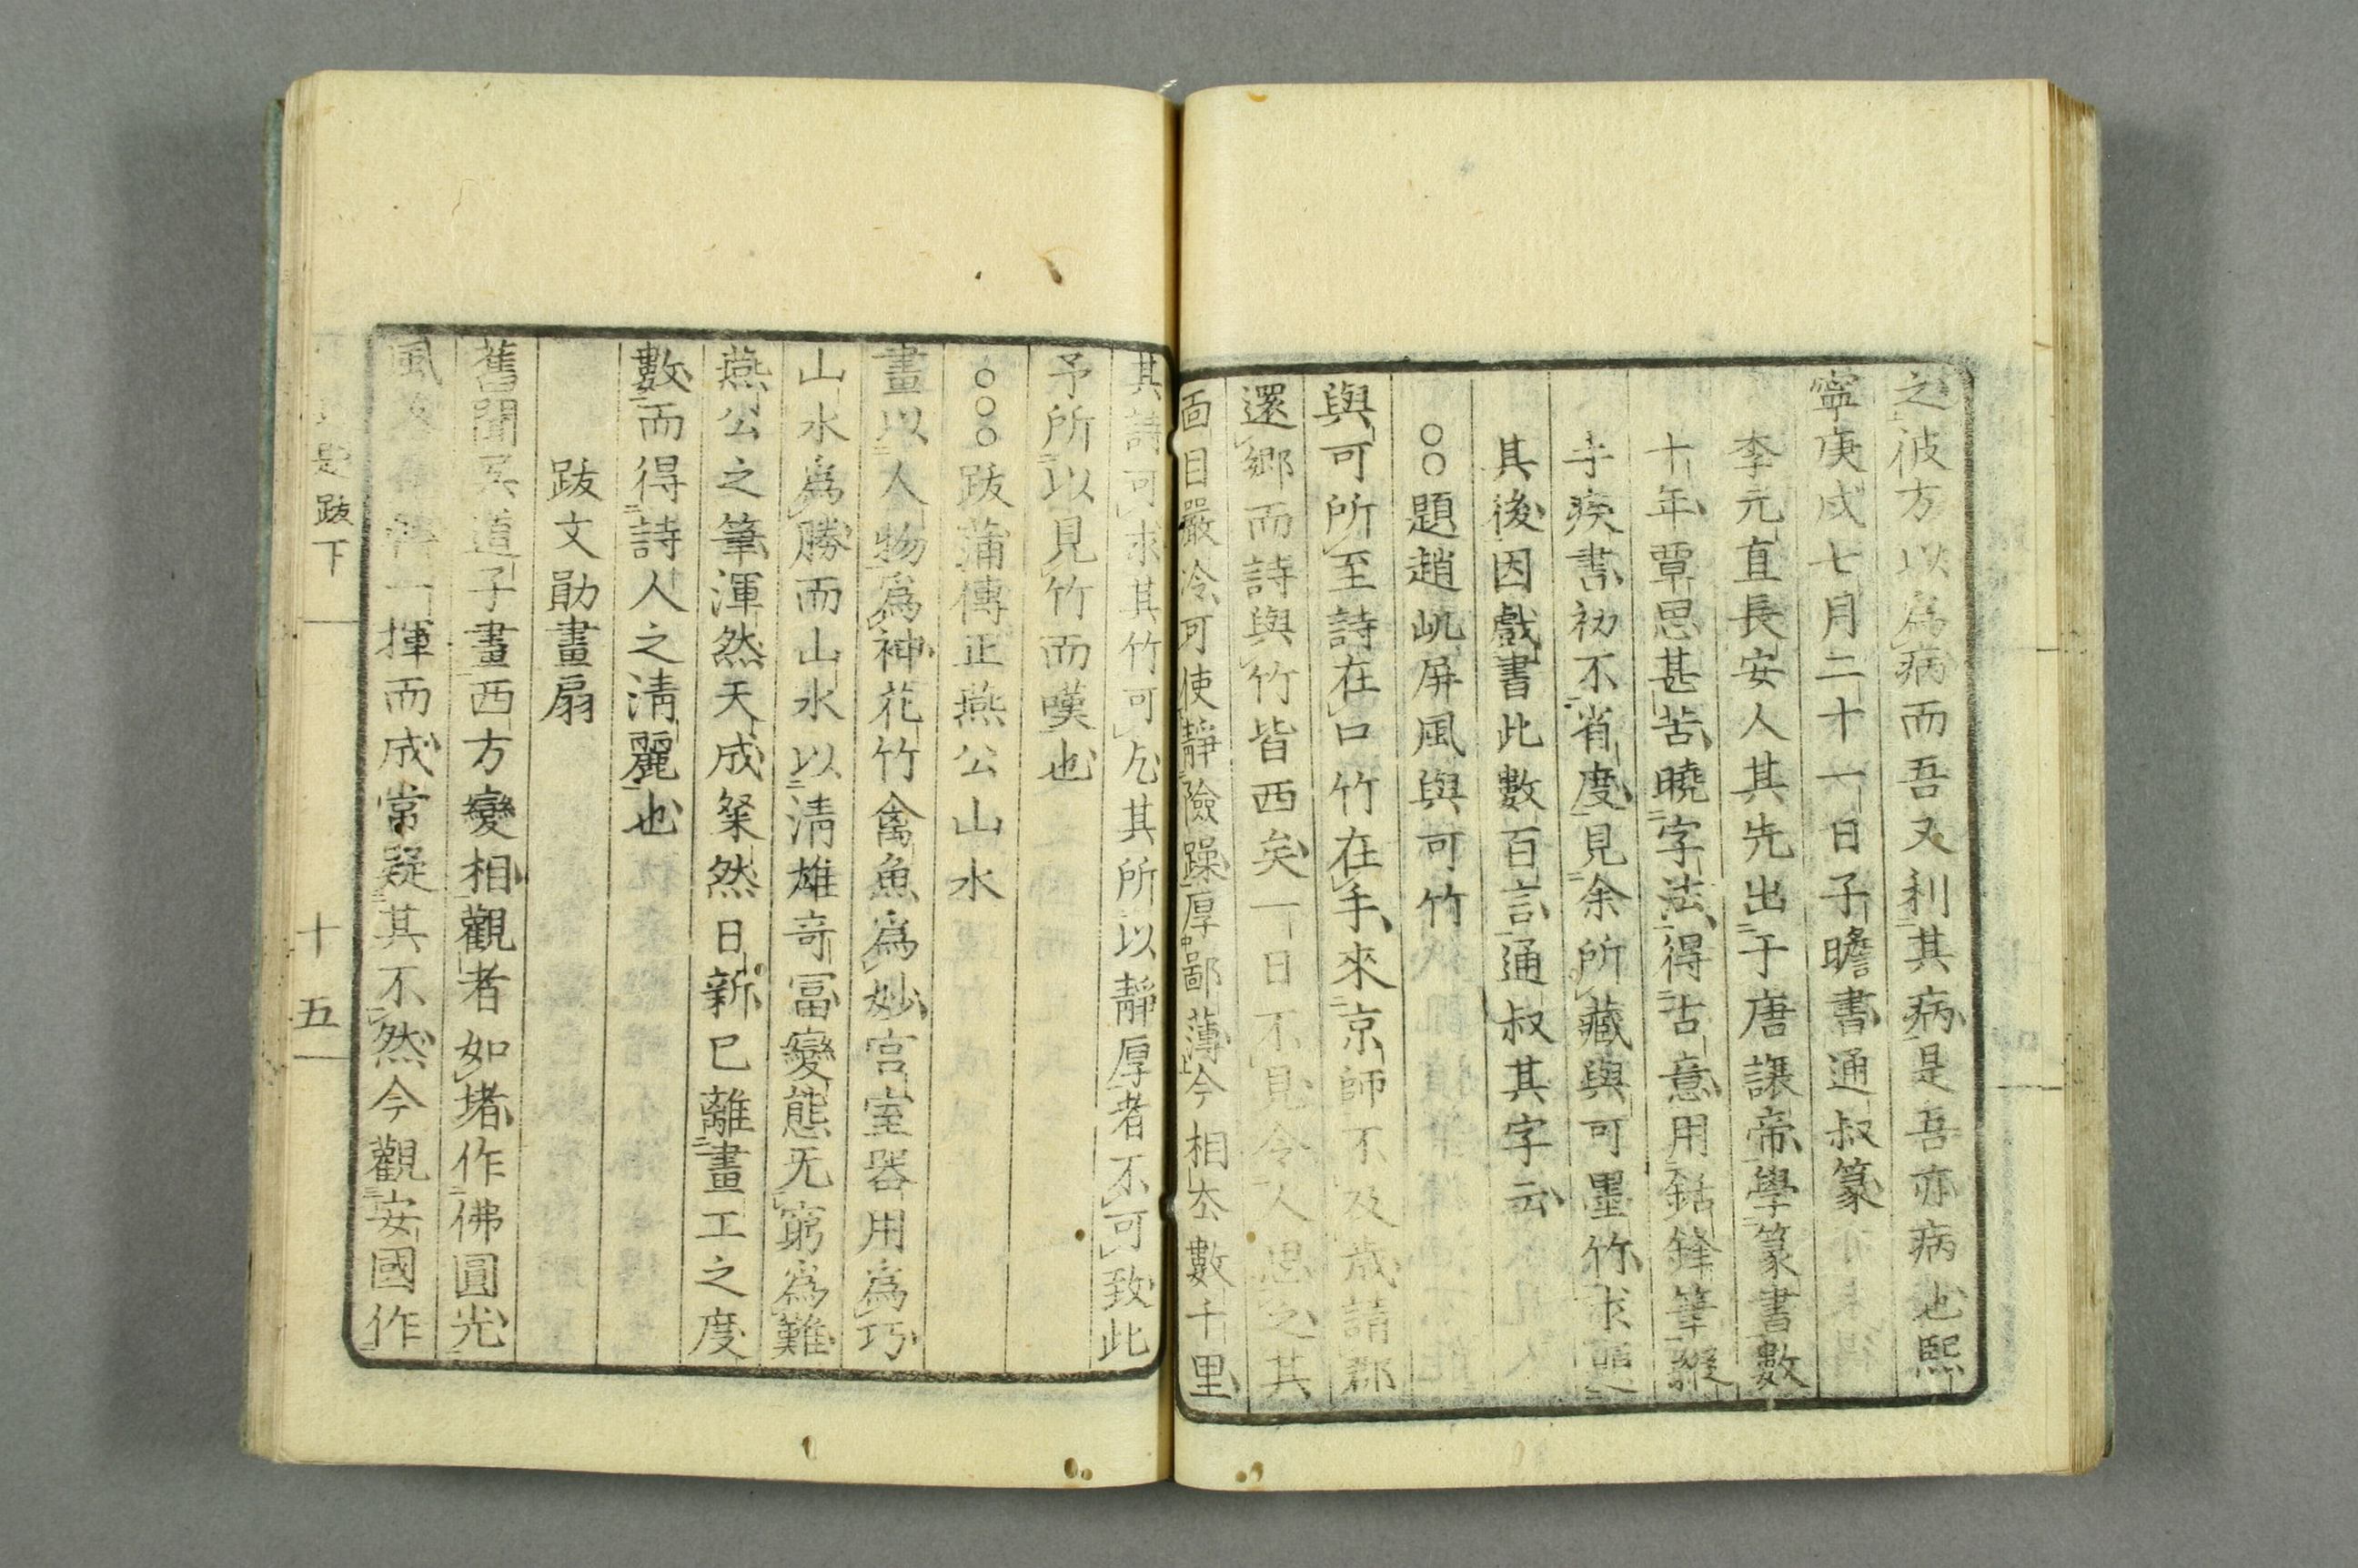 之彼方以為病而吾又利其病是吾亦病也熙
寧庚戌七月二十一日子瞻書通叔篆
李元直長安人其先出于唐讓帝學篆書數
十年覃思甚苦曉字法得古意用銛鋒筆縱
手疾書初不省度見余所藏與可墨竹求
其後因戲書此數百言通叔其字云
○○題趙屼屏風與可竹
與可所至詩在口竹在手來京師不及歲請郡
還鄉而詩與竹皆西矣一日不見令人思之其
面目嚴冷可使靜險躁厚鄙薄今相去數千里
其詩可求其竹可乞其所以靜厚者不可致此
予所以見竹而嘆也
○○○跋蒲傳正燕公山水
畫以人物為神花竹禽魚為妙宮室器用為巧
山水為勝而山水以清雄奇冨變態无窮為難
燕公之筆渾然天成粲然日新已離畫工之度
數而得詩人之清麗也
跋文勛畫扇
舊聞吳道子畫西方變相觀者如堵作佛圓光
風一揮而成常疑其不然今觀安國作
題跋下
十五